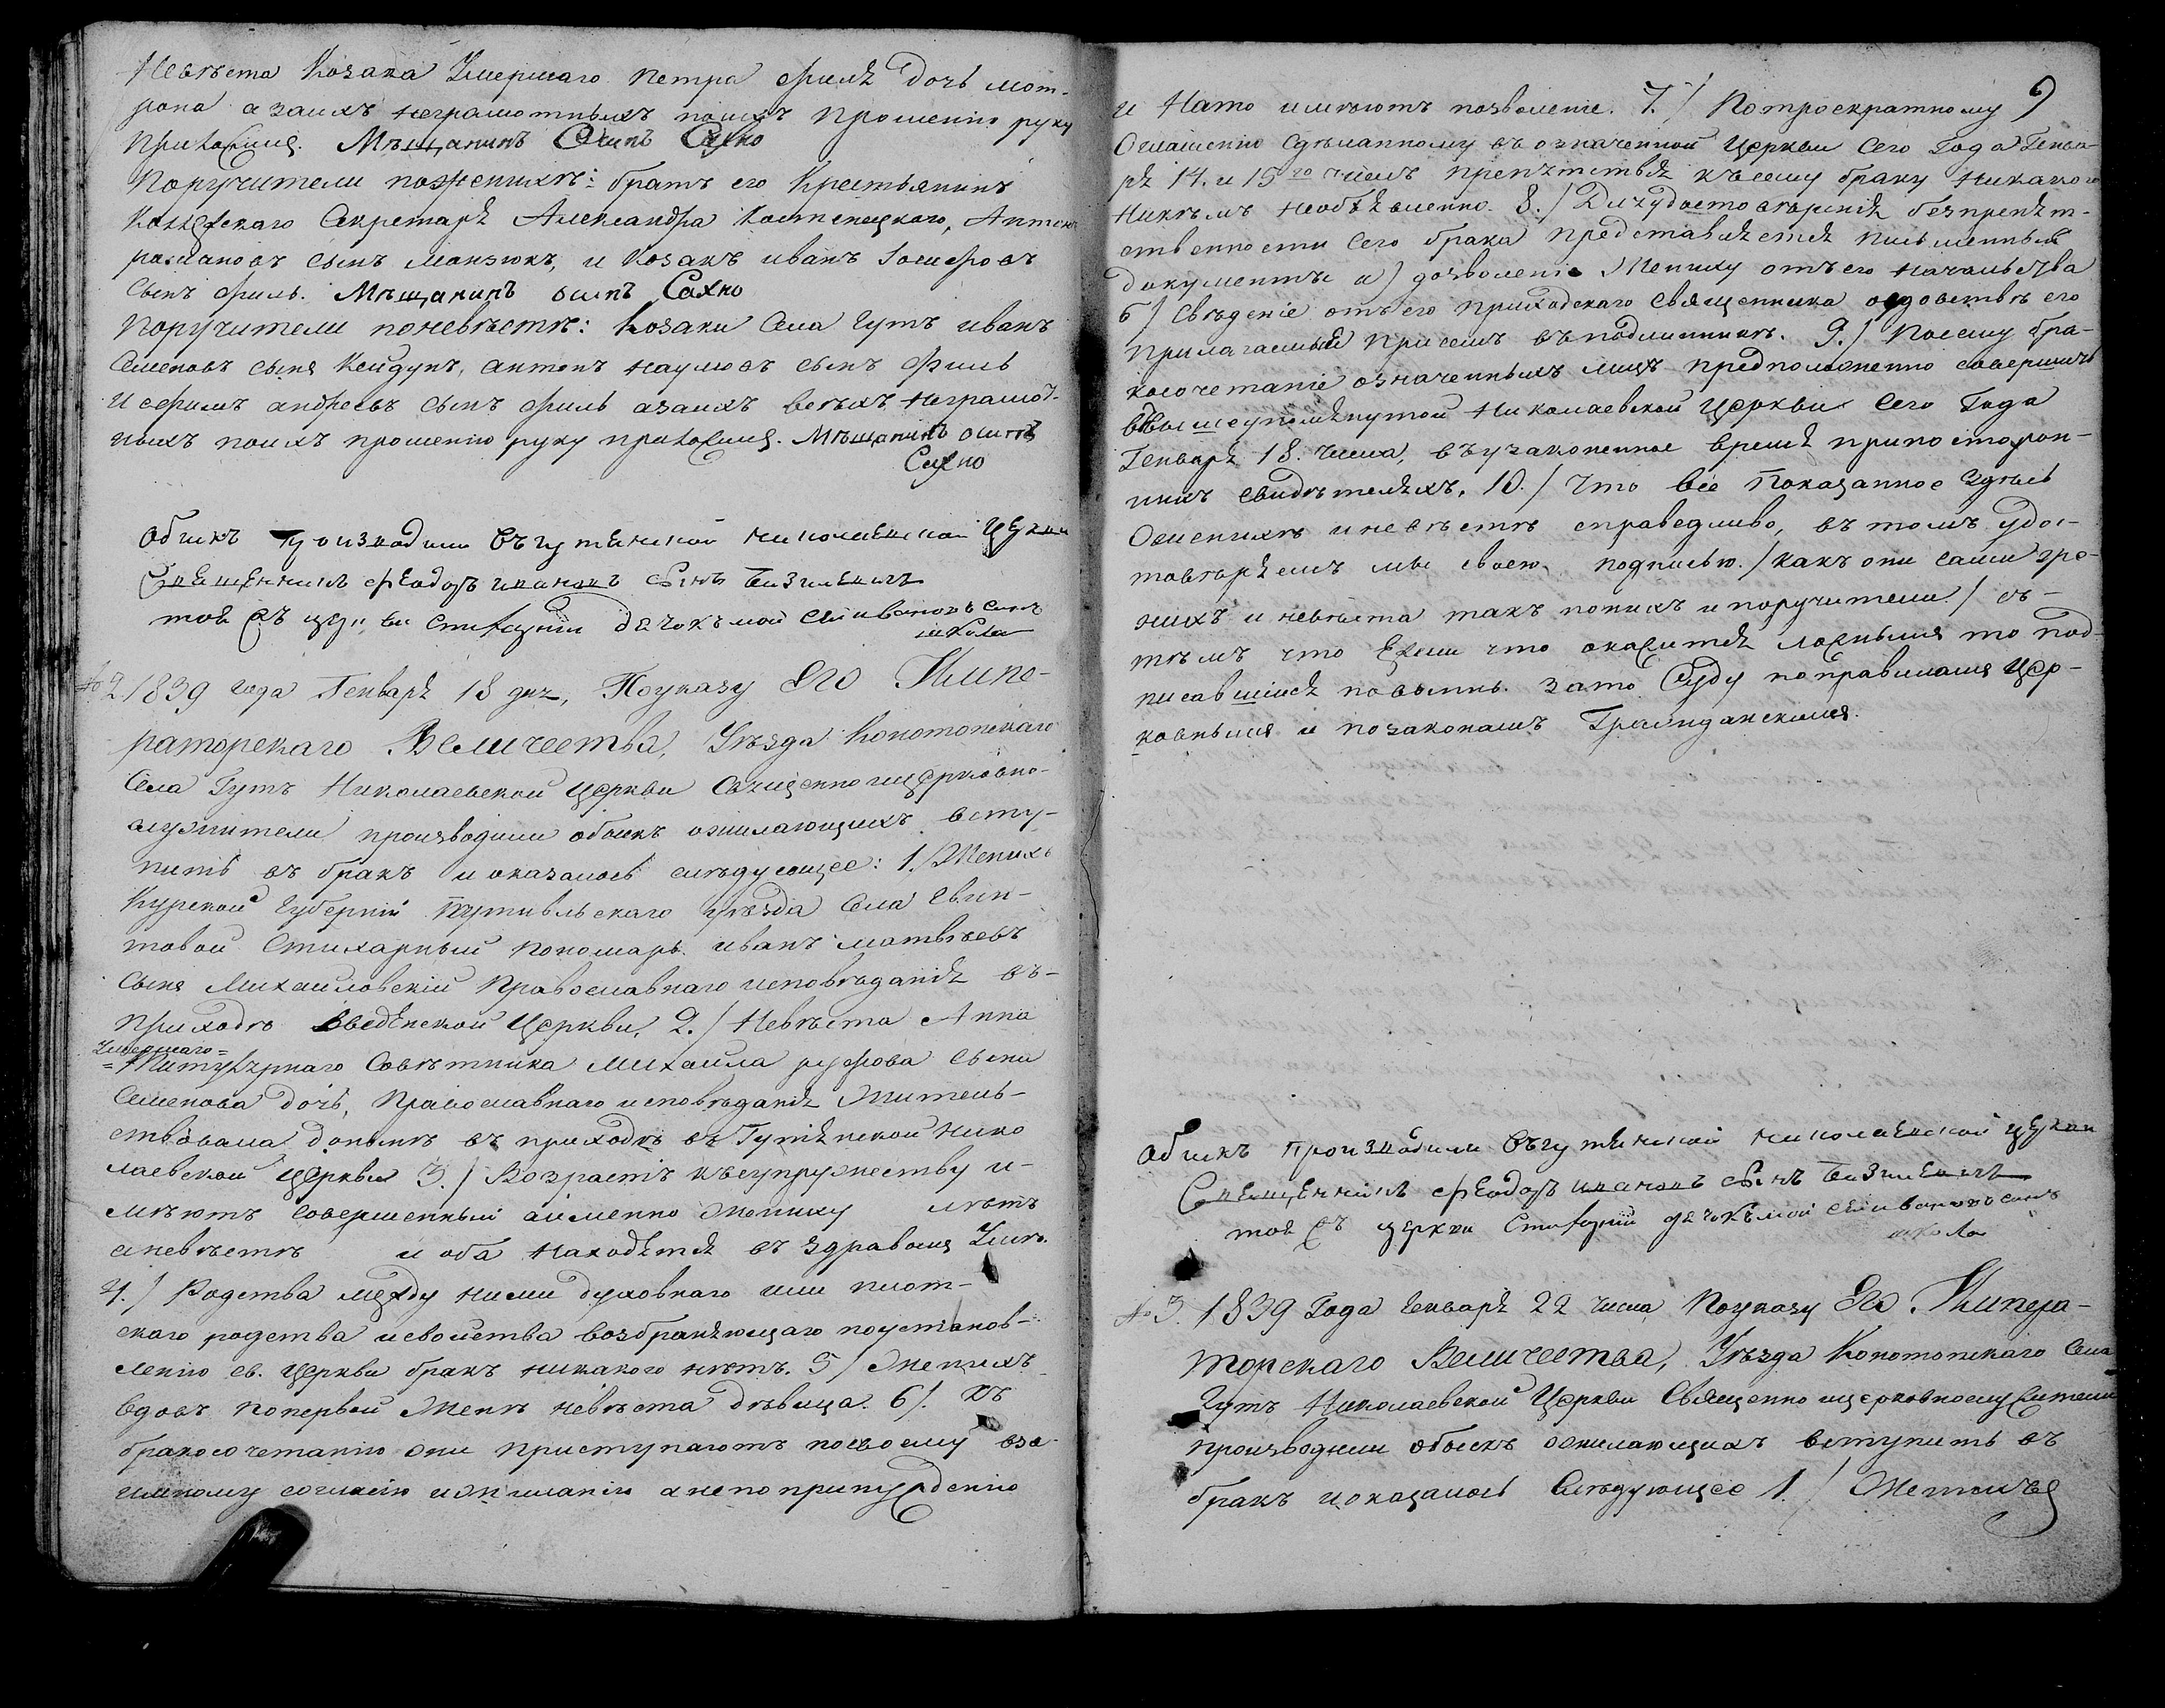 Невѣста Козака Умершаго Петра Филя Дочь мот-
рона а заихъ неграмотныхъ поихъ прошенію руку
приложилъ. Мѣщанинъ Осипъ Сахно
Поручители поженихѣ: братъ его Крестьянинъ
Секретаря Александра Костенецкаго, Антонъ
романовъ сынъ Манзюкъ, и Козакъ иванъ
сынъ филь. Мѣщанинъ осипъ Сахно
Поручители поневѣстѣ: Козаки Села Гутъ иванъ
Семеновъ сынъ Кейдунъ, антонъ наумовъ сынъ Филь
И ефимъ андреевъ сынъ филь азаихъ всѣхъ неграмот-
ныхъ поихъ прошенію руку приложилъ. Мѣщанинъ осипъ
Сахно
обискъ производили въгутянской николаевской церкви
Священникъ феодоръ ивановъ синъ
той жъ церкви стихарній дячокъ мойсей ивановъ синъ
школа
№ 2. 1839 года Генваря 18 дня, Поуказу Его Импе-
раторскаго Величества, Уѣзда Конотопскаго
Села Гутъ Николаевской Церкви Священноицерковно-
служители производили обыскъ ожелающихъ всту-
пить въ бракъ и оказалось слѣдующее: 1./ Женихъ
Курской Губерніи Путивльскаго уѣзда Села Свин-
товой Стихарный пономарь иванъ матвѣевъ
сынъ Михайловскій Православнаго исповѣданія въ-
приходѣ введенской Церкви, 2./ Невѣста Анна
Умершаго=
=Титулярнаго Совѣтника Михаила сына
Семенова дочь, православнаго исповѣданія Житель-
ствовала донынѣ въ приходѣ въ Гутянской нико
лаевской Церкви 3./ Возрастъ къ супружеству и-
мѣютъ совершенный аименно жениху лѣтъ
аневѣстѣ и оба находятся въ здравомъ Умѣ.
4./ Родства между ними духовнаго или плот-
скаго родства исвойства возбраняющаго поустанов-
ленію св. Церкви бракъ никакого нѣтъ. 5/ Женихъ
вдовъ попервой Женѣ невѣста дѣвица. 6/. Къ
бракосочетанію они приступаютъ посвоему вза-
имному согласію ижеланію а непопринужденію
9
и Нато имѣютъ позволеніе. 7./ Потроекратному
Оглашенію сдѣланному въозначенной Церкви Сего Года Генва-
ря 14. и 15го числъ препятствія къ сему браку никакого
никѣмъ необъявленно. 8./ Для удостовѣренія безпрепят-
ственности сего брака представляется письменныя
документы а) дозволеніе Жениху отъего начальства
б/ Свѣденіе отъего приходскаго Священника овдовствѣ его
прилагаемыя присемъ въподлинникѣ. 9./ Посему бра-
косочетаніе означенныхъ лицъ предположенно совершить
ввышеупомянутой николаевской Церкви Сего Года
Генваря 18. числа, въузаконенное время припосторон-
нихъ свидѣтеляхъ. 10./ Что все показанное здѣсь
Оженихѣ иневѣстѣ справедливо, въ томъ удос-
товѣряемъ мы своею подписью./ какъ они сами Же-
нихъ и невѣста такъ понихъ ипоручители/ съ-
тѣмъ что ежели что окажется ложнымъ то под-
писавшіися повинны. зато Суду поправиламъ Цер-
ковнымъ и позаконамъ Гражданскимъ.
обискъ производили въгутянской николаевской церкви
Священникъ феодоръ ивановъ синъ
той жъ церкви стихарній дячокъ мойсей ивановъ синъ
школа
№ 3. 1839 Года Генваря 22 числа Поуказу Его Импера-
торскаго Величества, Уѣзда Конотопскаго Села
Гутъ Николаевской Церкви Священно ицерковнослужители
производили обыскъ ожелающихъ вступить въ
бракъ иоказалось Слѣдующее 1./ Женихъ